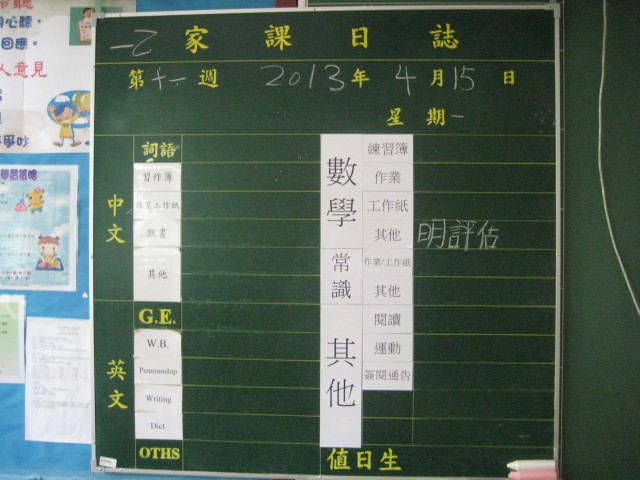 一乙 家課日誌
第十一週 2013年4月15日
星期一
中文
詞語
習作簿
工作紙
默書
其他
英文
G.E.
W.B.
Penmanship
Writing
Dict.
OTHS
數學
練習簿
作業
工作紙
其他 明評估
常識
作業/工作紙
其他
其他
閱讀
運動
簽閱通告
值日生
心聽，
回應。
人意見